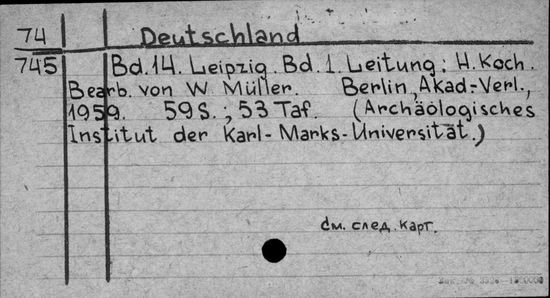 74 Deutschland
745 Bd. 14. Leipzig. Bd. 1. Leitung: H. Koch.
Bearb. von W. Müller. Berlin, Akad.-Verl.,
1959. 59 S.; 53 Taf. (Archäologisches
Institut der Karl-Marks-Universität.)
См. след. карт.